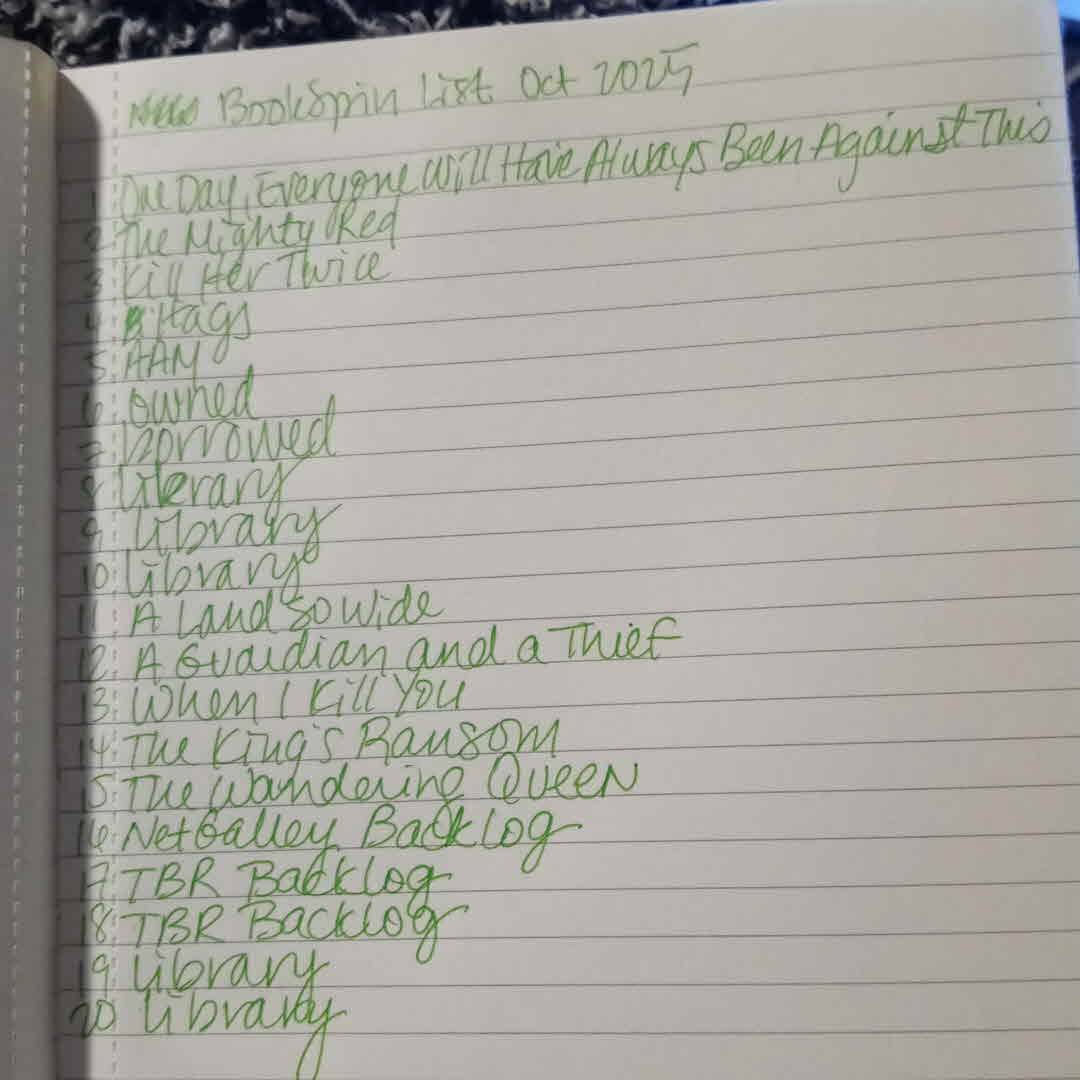 BookSpin List Oct 2025
1. One Day, Everyone Will Have Always Been Against This
2. The Mighty Red
3. Kill Her Twice
4. Hags
5. AAM
6. owned
7. Borrowed
8. Literary
9. Library
10. Library
11. A Land So Wide
12. A Guardian and a Thief
13. When I Kill You
14. The King's Ransom
15. The Wandering Queen
16. NetGalley Backlog
17. TBR Backlog
18. TBR Backlog
19 Library
20 Library